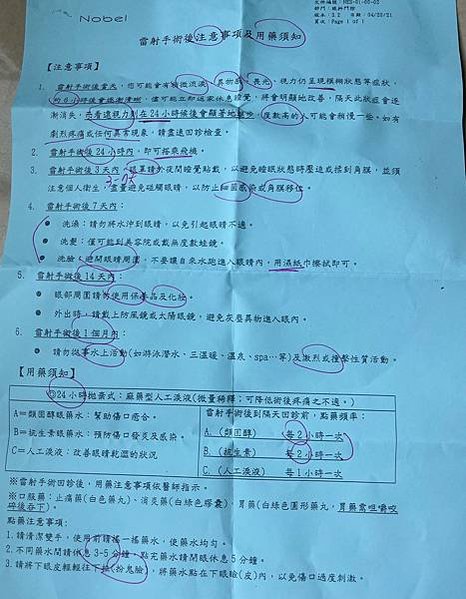 Nobel
頁次：Page 1 of 1
雷射手術後注意事項及用藥須知
【注意事項】
1. 雷射手術後當天，您可能會有輕微流淚、異物感、畏光、視力仍呈現模糊狀態等症狀，
約6小時後會趨漸清晰，儘可能立即返家休息睡覺，將會明顯地改善，隔天此狀症會逐
漸消失，去看遠視力則在24小時候後會顯著地，度數高的人可能會稍慢一些。如有
劇烈疼痛或任何異常現象，請盡速回診檢查。
2. 雷射手術後24小時內，即可搭乘飛機。
3. 雷射手術後3天內，眼罩請於夜間睡覺黏戴，以避免睡眠狀態時壓迫或揉到角膜，並須
3-7天
注意個人衛生，盡量避免碰觸眼睛，以防止細菌感染或角膜移位。
4. 雷射手術後7天內：
● 洗澡：請勿將水沖到眼睛，以免引起眼睛不適。
● 洗髮：僅可能到美容院或戴無度數蛙鏡。
● 洗臉：避開眼睛周圍，不要讓自來水跑進入眼睛內，用濕紙巾擦拭即可。
5. 雷射手術後14天內：
● 眼部周圍請勿使用保養品及化妝。
● 外出時，請戴上防風鏡或太陽眼鏡，避免灰塵異物進入眼內。
6. 雷射手術後1個月內：
● 請勿從事水上活動(如游泳潛水、三溫暖、溫泉、spa…等)及激烈或撞擊性質活動。
【用藥須知】
24小時拋棄式：麻藥型人工淚液(微量稀釋；可降低術後疼痛之不適。)
A＝類固醇眼藥水：幫助傷口癒合。
B＝抗生素眼藥水：預防傷口發炎及感染。
C＝人工淚液：改善眼睛乾澀的狀況
雷射手術後到隔天回診前，點藥頻率：
A. (類固醇) 每2小時一次
B. (抗生素) 每2小時一次
C. (人工淚液) 每1小時一次
※雷射手術後用藥，回診後依醫師指示。
※口服藥：止痛藥(白色藥丸)、消炎藥(白綠色膠囊)、胃藥(白綠色圓形藥丸，胃藥需咀嚼咬
碎後吞下)。
點藥注意事項：
1. 請清潔雙手，使用前請搖一搖藥水，使藥水均勻。
2. 不同藥水間請休息3-5分鐘，點完藥水請閉眼休息5分鐘。
3. 請將下眼皮輕輕往下拉(扮鬼臉)，將藥水點在下眼瞼(皮)內，以免傷口過度刺激。